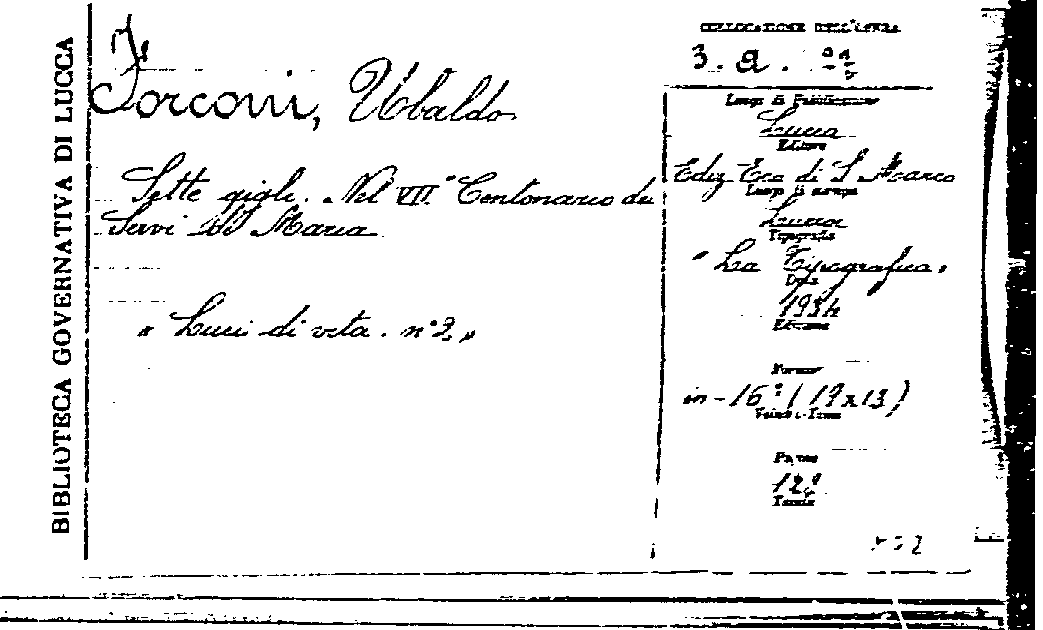 BIBLIOTECA GOVERNATIVA DI LUCCA
Forconi, Ubaldo
Sette gigli. Nel VII° Centenario dei
Servi di Maria
« Luci di vita. n° 2 »
COLLOCAZIONE DELL'OPERA
3. a.
Luogo di Pubblicazione
Lucca
Editore
Ediz Eco di S Marco
Luogo di stampa
Lucca
Tipografia
"La Tipografica"
Data
1934
Edizione
Formato
in-16° (19x13)
Volumi o Tomi
Pagine
Tavole